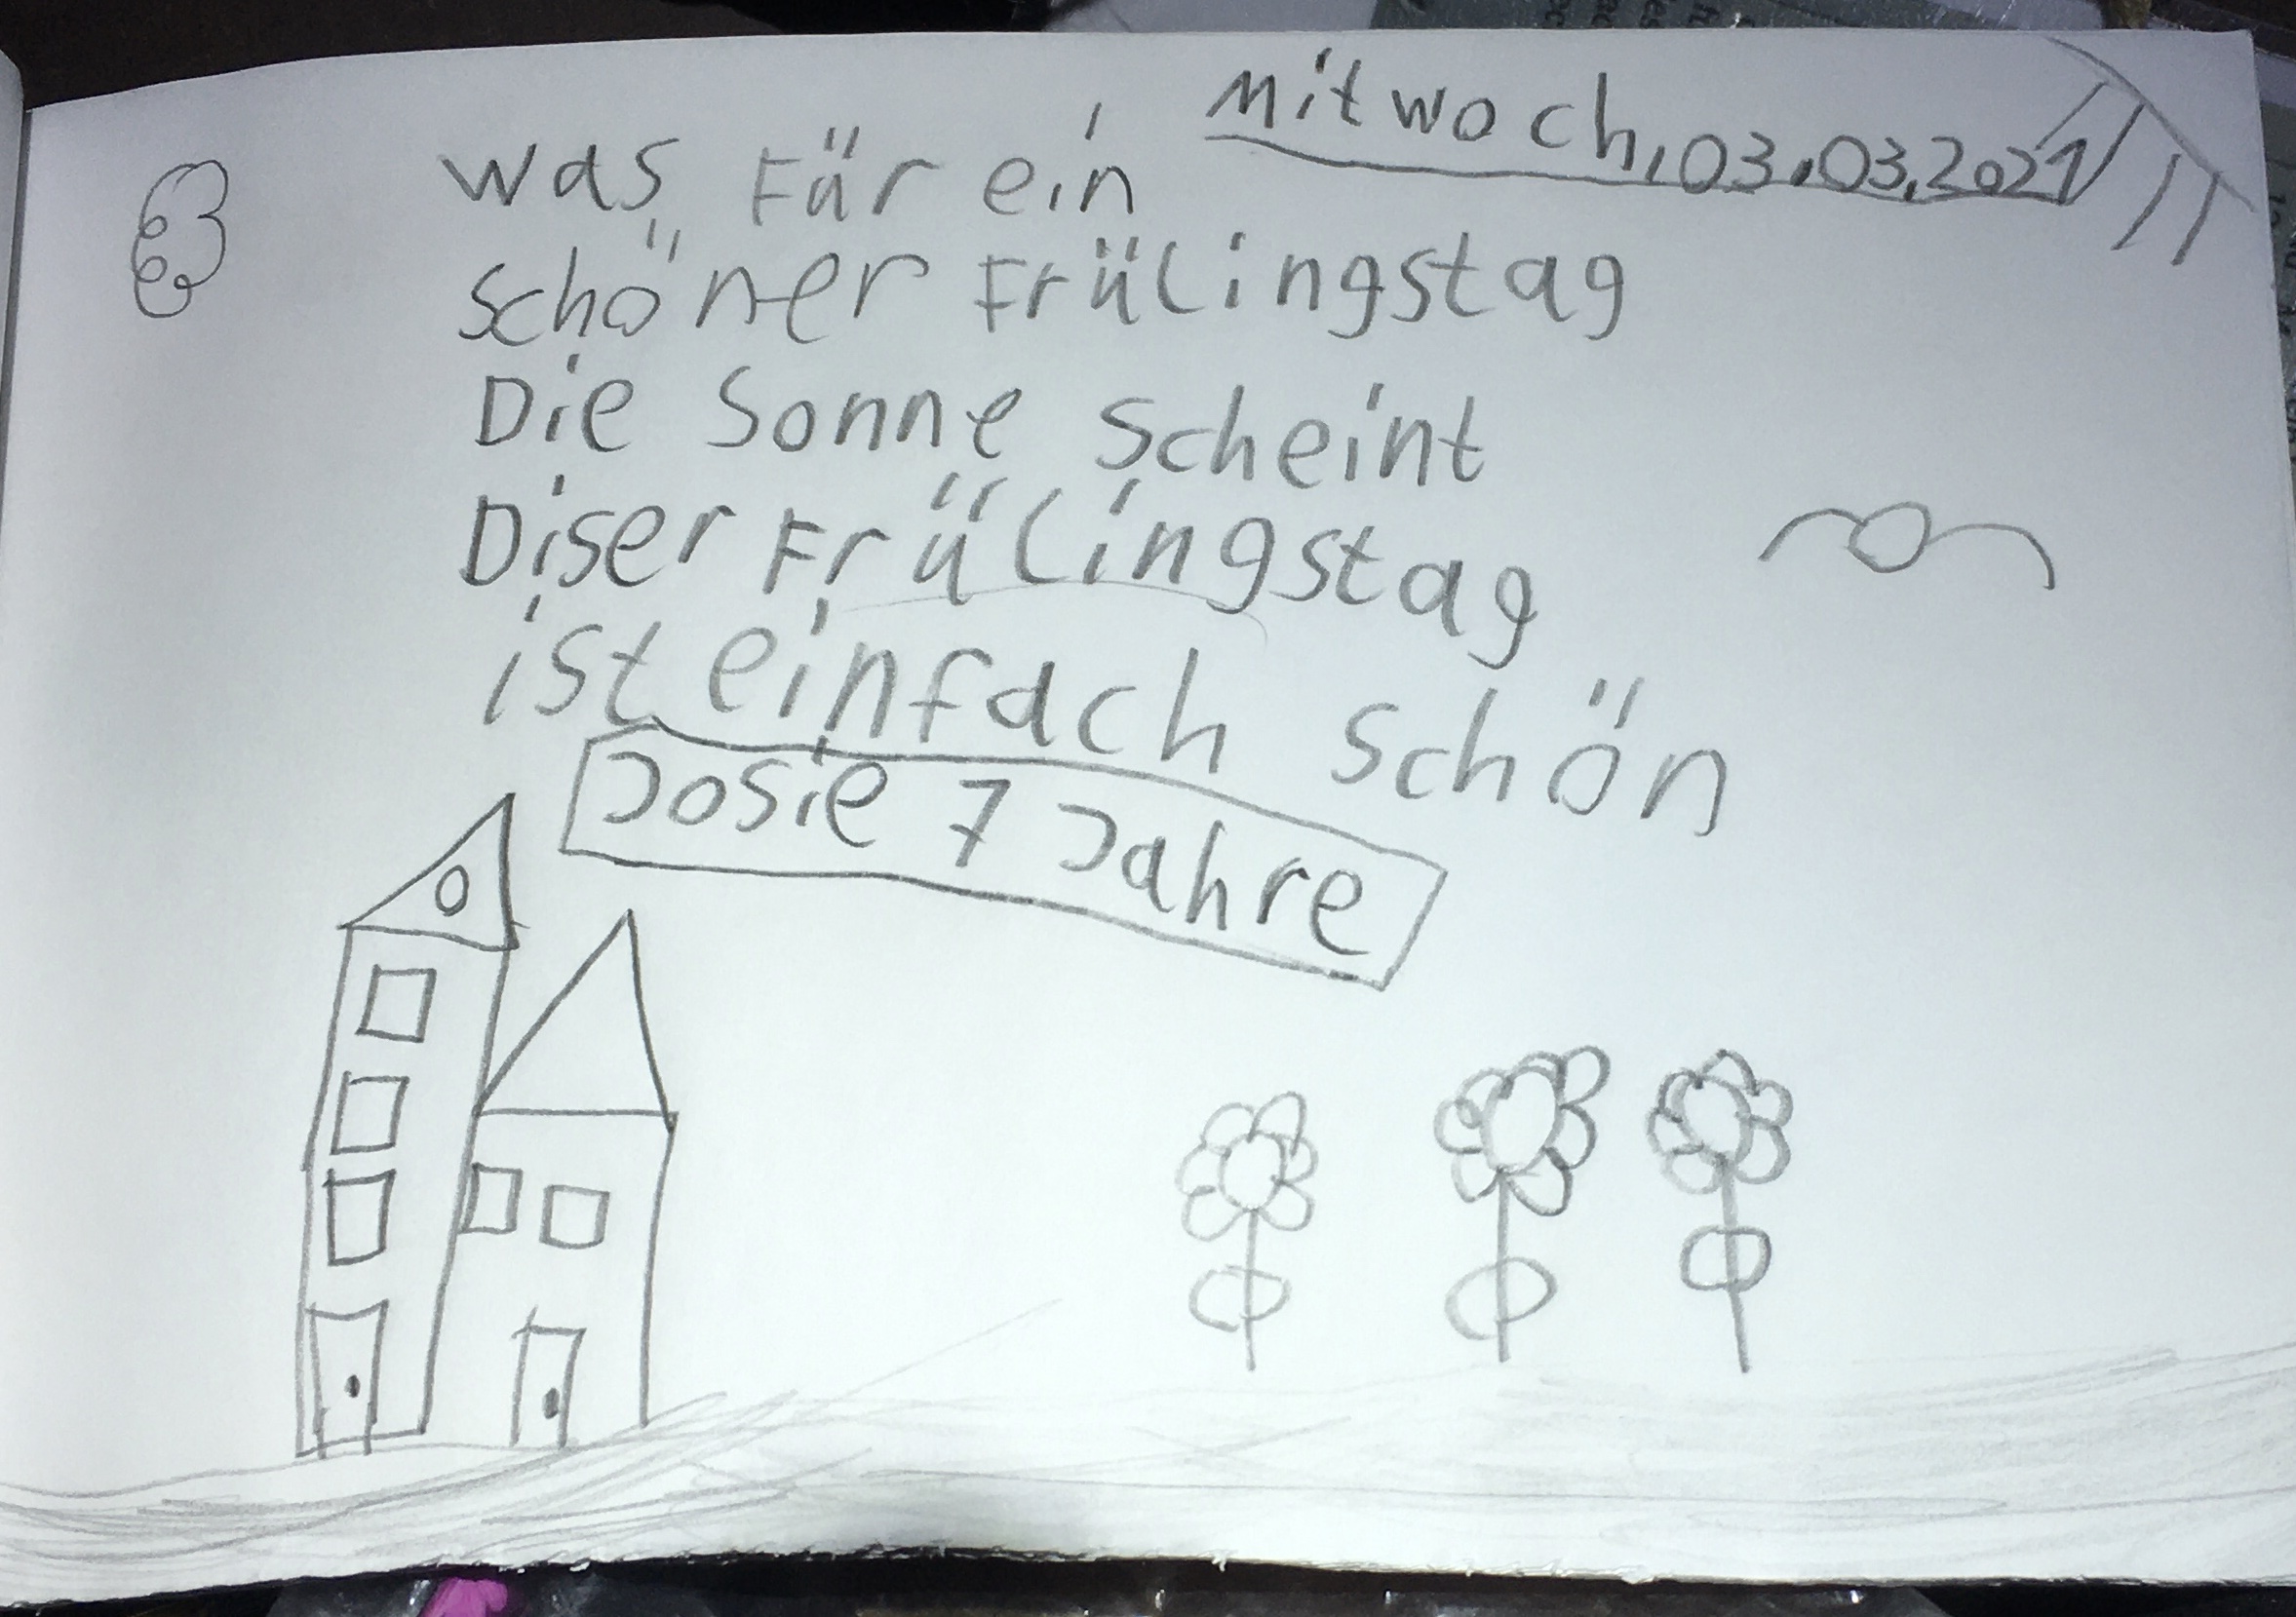 Mitwoch, 03.03.2021
was für ein
schöner Frülingstag
Die Sonne scheint
Diser Frülingstag
ist einfach schön
Josie 7 Jahre